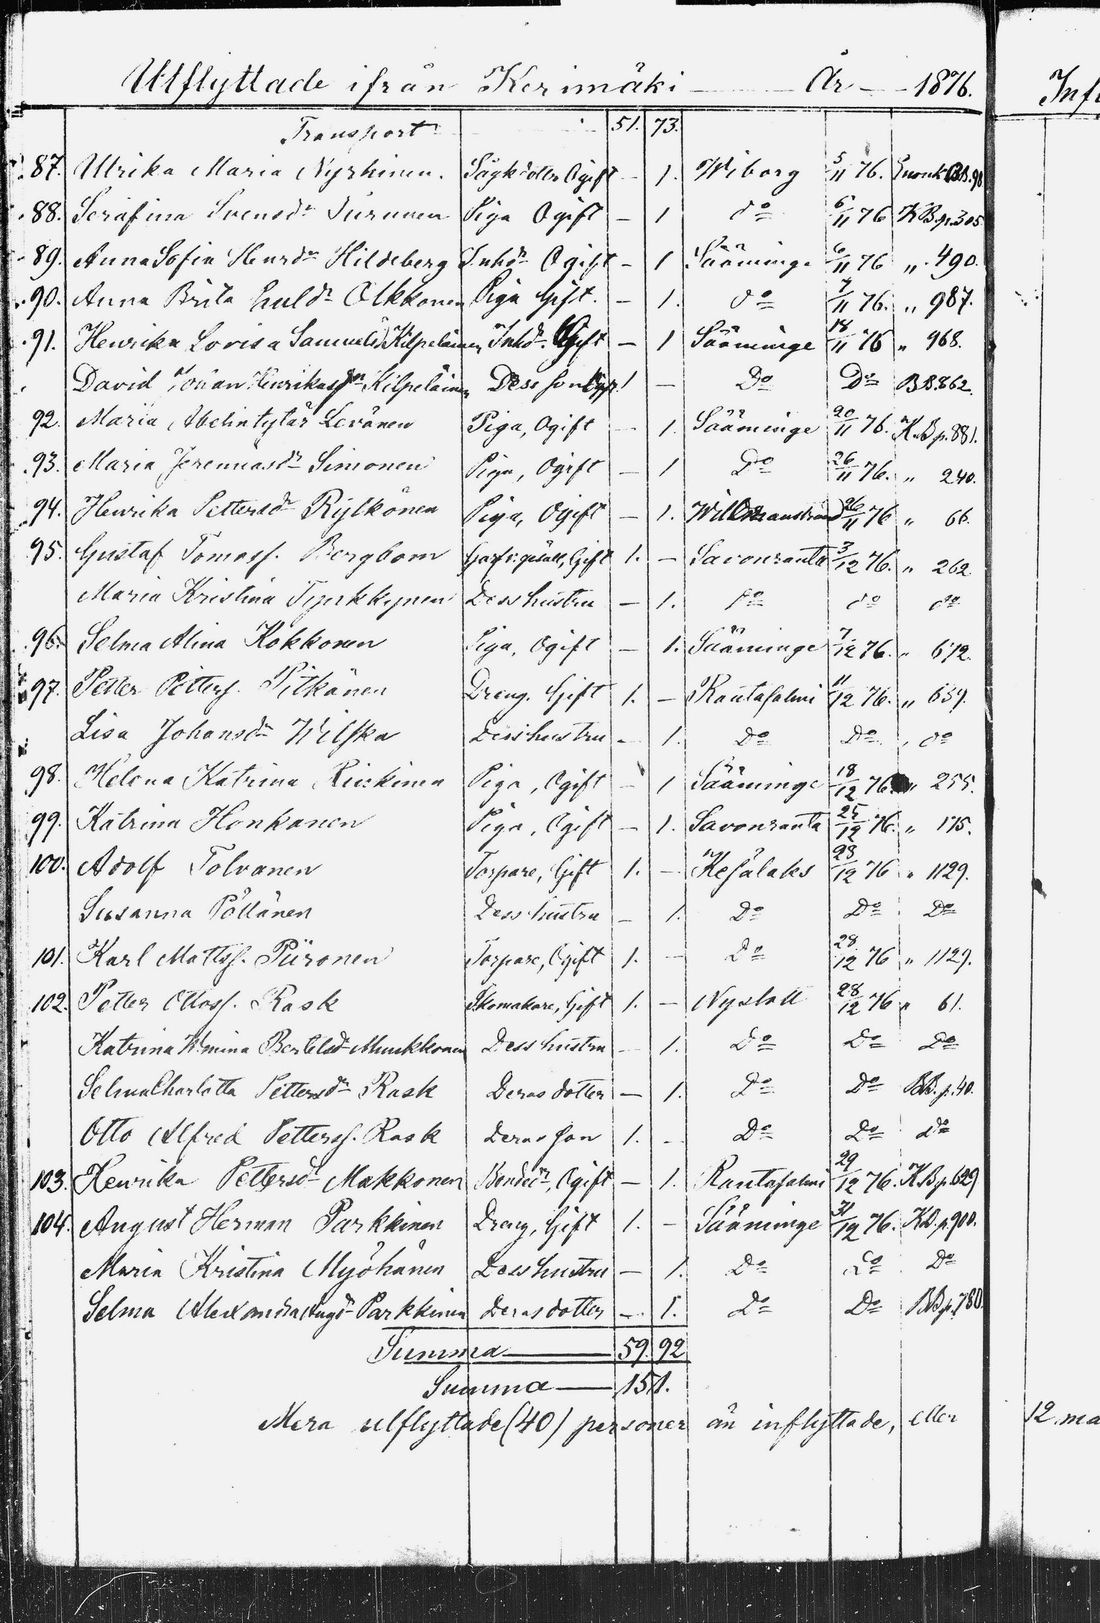 Utflyttade ifrån Kerimäki — År — 1876.
Inf
Transport 51. 73.
87. Ulrika Maria Nyrhinen. Ogift — 1. Wiborg 5/11 76. BB. 90
88. Serafina Svensdr Turunen Piga Ogift — 1 do 6/11 76 KB.p.305
89. Anna Sofia Henrdr Hildeberg Inhdr Ogift — 1 Sääminge 6/11 76 „ 490.
90. Anna Brita Paulsdr Olkkonen Piga Gift. — 1. do 7/11 76. „ 987.
91. Henrika Lovisa Samuelsdr Kilpeläinen Inhdr. — 1 Sääminge 18/11 76 „ 968.
David Johan Henrikasson Kilpeläinen Dess son 1 — Do Do BB.862.
92. Maria Abelintytär Levänen Piga, Ogift — 1. Sääminge 20/11 76. K.B p.881.
93. Maria Jeremiasdr Simonen Piga, Ogift — 1 Do 26/11 76. „ 240.
94. Henrika Pettersdr Rytkönen Piga, Ogift — 1. Willmanstrand 26/11 76 „ 66.
95. Gustaf Tomass. Bergbom Garfv.gesäll, Gift 1. — Savonranta 3/12 76. „ 262
Maria Kristina Tynkkynen Dess hustru — 1. do do do
96. Selma Alina Kokkonen Piga, Ogift — 1. Sääminge 7/12 76. „ 672.
97. Petter Petters. Pitkänen Dreng. Gift 1. — Rantasalmi 11/12 76. „ 659.
Lisa Johansdr Wilska Dess hustru — 1. Do Do „ do
98. Helena Katrina Piga, Ogift — 1 Sääminge 18/12 76. „ 255.
99. Katrina Honkanen Piga, Ogift — 1. Savonranta 25/12 76. „ 175.
100. Adolf Tolvanen Torpare, Gift 1. — Kesälaks 28/12 76 „ 1129.
Susanna Pöllänen Dess hustru — 1. Do Do Do
101. Karl Matts. Piironen Torpare, Ogift 1. — Do 28/12 76 „ 1129.
102. Petter Ottos. Rask Skomakare, Gift 1. — Nyslott 28/12 76 „ 61.
Katrina Wmina Bertelsdr Munkkonen Dess hustru — 1. Do Do Do
Selma Charlotta Pettersdr Rask Deras dotter — 1. Do Do BB.p.40.
Otto Alfred Petterss. Rask Deras son 1. — Do Do do
103. Henrika Pettersdr Makkonen Bondedr, Ogift — 1. Rantasalmi 29/12 76. KB.p.629
104. August Herman Parkkinen Dreng, Gift 1. — Sääminge 31/12 76. KB.p.900.
Maria Kristina Myöhänen Dess hustru — 1. Do Do Do
Selma Alexandra Augdr Parkkinen Deras dotter — 1. Do Do BB.p.780.
Summa — 59. 92
Summa — 151.
Mera utflyttade (40) personer än inflyttade, eller
12. ma